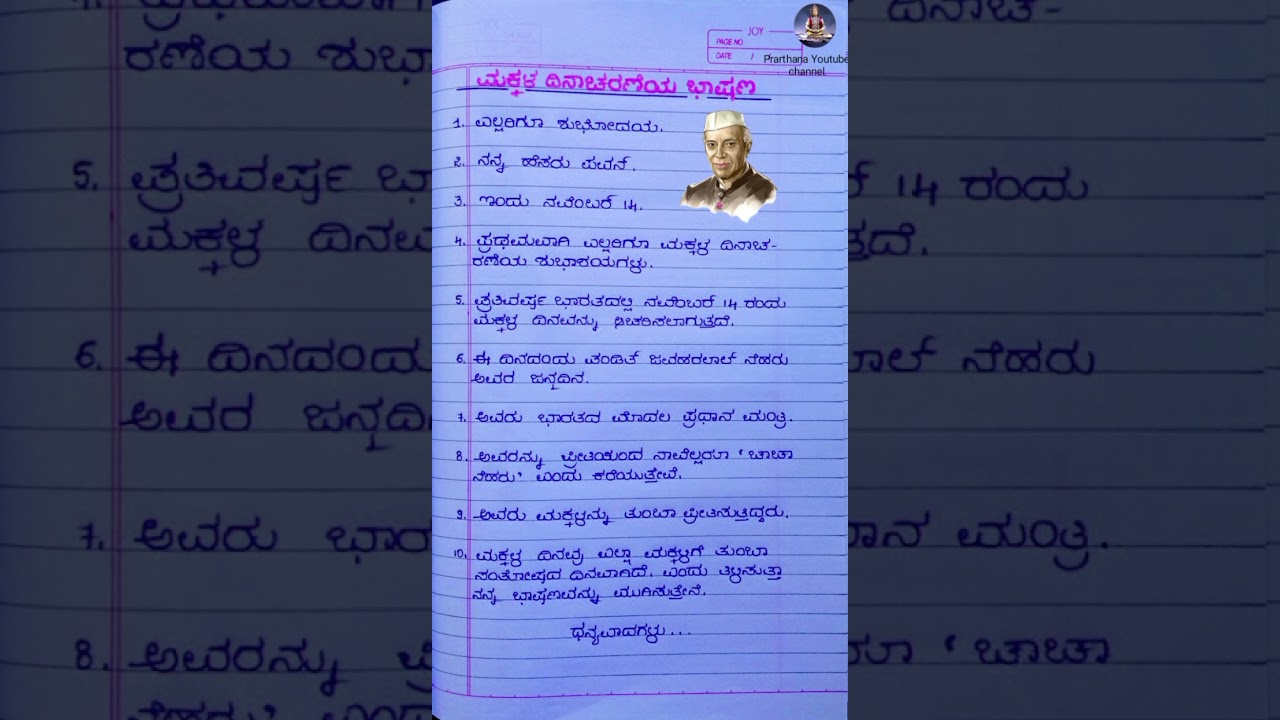 JOY
PAGE NO.
DATE /
Prarthana Youtube
channel
ಮಕ್ಕಳ ದಿನಾಚರಣೆಯ ಭಾಷಣ
1. ಎಲ್ಲರಿಗೂ ಶುಭೋದಯ.
2. ನನ್ನ ಹೆಸರು ಪವನ್.
3. ಇಂದು ನವೆಂಬರ್ 14.
4. ಪ್ರಥಮವಾಗಿ ಎಲ್ಲರಿಗೂ ಮಕ್ಕಳ ದಿನಾಚ-
ರಣೆಯ ಶುಭಾಶಯಗಳು.
5. ಪ್ರತಿವರ್ಷ ಭಾರತದಲ್ಲಿ ನವೆಂಬರ್ 14 ರಂದು
ಮಕ್ಕಳ ದಿನವನ್ನು ಆಚರಿಸಲಾಗುತ್ತದೆ.
6. ಈ ದಿನದಂದು ಪಂಡಿತ್ ಜವಹರಲಾಲ್ ನೆಹರು
ಅವರ ಜನ್ಮದಿನ.
7. ಅವರು ಭಾರತದ ಮೊದಲ ಪ್ರಧಾನ ಮಂತ್ರಿ.
8. ಅವರನ್ನು ಪ್ರೀತಿಯಿಂದ ನಾವೆಲ್ಲರೂ ‘ಚಾಚಾ
ನೆಹರು’ ಎಂದು ಕರೆಯುತ್ತೇವೆ.
9. ಅವರು ಮಕ್ಕಳನ್ನು ತುಂಬಾ ಪ್ರೀತಿಸುತ್ತಿದ್ದರು.
10. ಮಕ್ಕಳ ದಿನವು ಎಲ್ಲಾ ಮಕ್ಕಳಿಗೆ ತುಂಬಾ
ಸಂತೋಷದ ದಿನವಾಗಿದೆ. ಎಂದು ತಿಳಿಸುತ್ತಾ
ನನ್ನ ಭಾಷಣವನ್ನು ಮುಗಿಸುತ್ತೇನೆ.
ಧನ್ಯವಾದಗಳು...